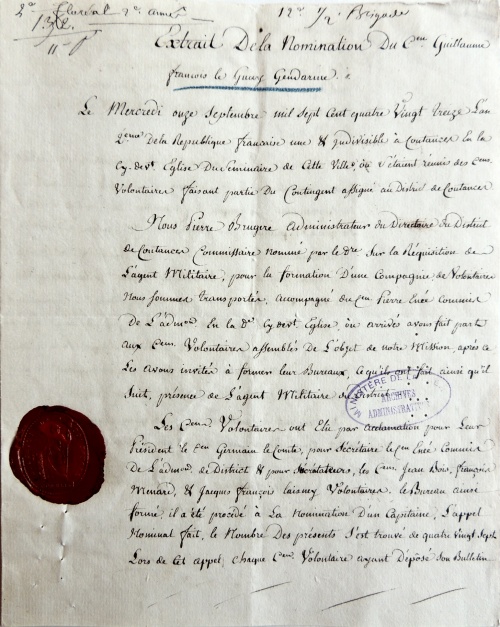 2.º floréal 2.e année
12e 1/2 Brigade
138.
11
Extrait De la Nomination Du C.en Guillaume
françois le Gendarme
Le Mercredi onze Septembre mil Sept Cent quatre Vingt treize L'an
2.eme De la Republique francaise une & Indivisible à Coutances En la
Cy-dev.t Eglise Du Seminaire de Cette Ville, où s'étaient réunis des C.ens
Volontaires faisant partie Du Contingent assigné au District de Coutances
Nous Pierre administrateur du Directoire du District
de Coutances Commissaire Nommé par le d.re Sur la Réquisition de
L'agent Militaire, pour la formation D'une Compagnie de Volontaires
Nous Sommes transportés, accompagné du C.en Pierre Enée Commis
De L'adm.on En la d.e Cy-dev.t Eglise, où arrivés avons fait part
aux C.ens Volontaires assemblés de L'objet de notre Mission, après ce
Les avons invités à former leur Bureaux, ce qu'ils ont fait ainsi qu'il
Suit, présence de L'agent Militaire du District.
MINISTÈRE DE
ARCHIVES
ADMINISTRATIVES
Les C.ens Volontaires ont Elu par acclamation pour Leur
Président le C.en Germain le Comte, pour Sécrétaire le C.en Enée Commis
De L'adm.on de District & pour Scrutateurs, les C.ens Jean Bois, françois
Menard, & Jacques françois laisney Volontaires. le Bureau ainsi
formé, il a été procédé à La Nomination D'un Capitaine, L'appel
Nominal fait, le Nombre Des présents S'est trouvé de quatre Vingt Sept.
Lors de Cet appel, chaque C.en Volontaire ayant Déposé Son Bulletin